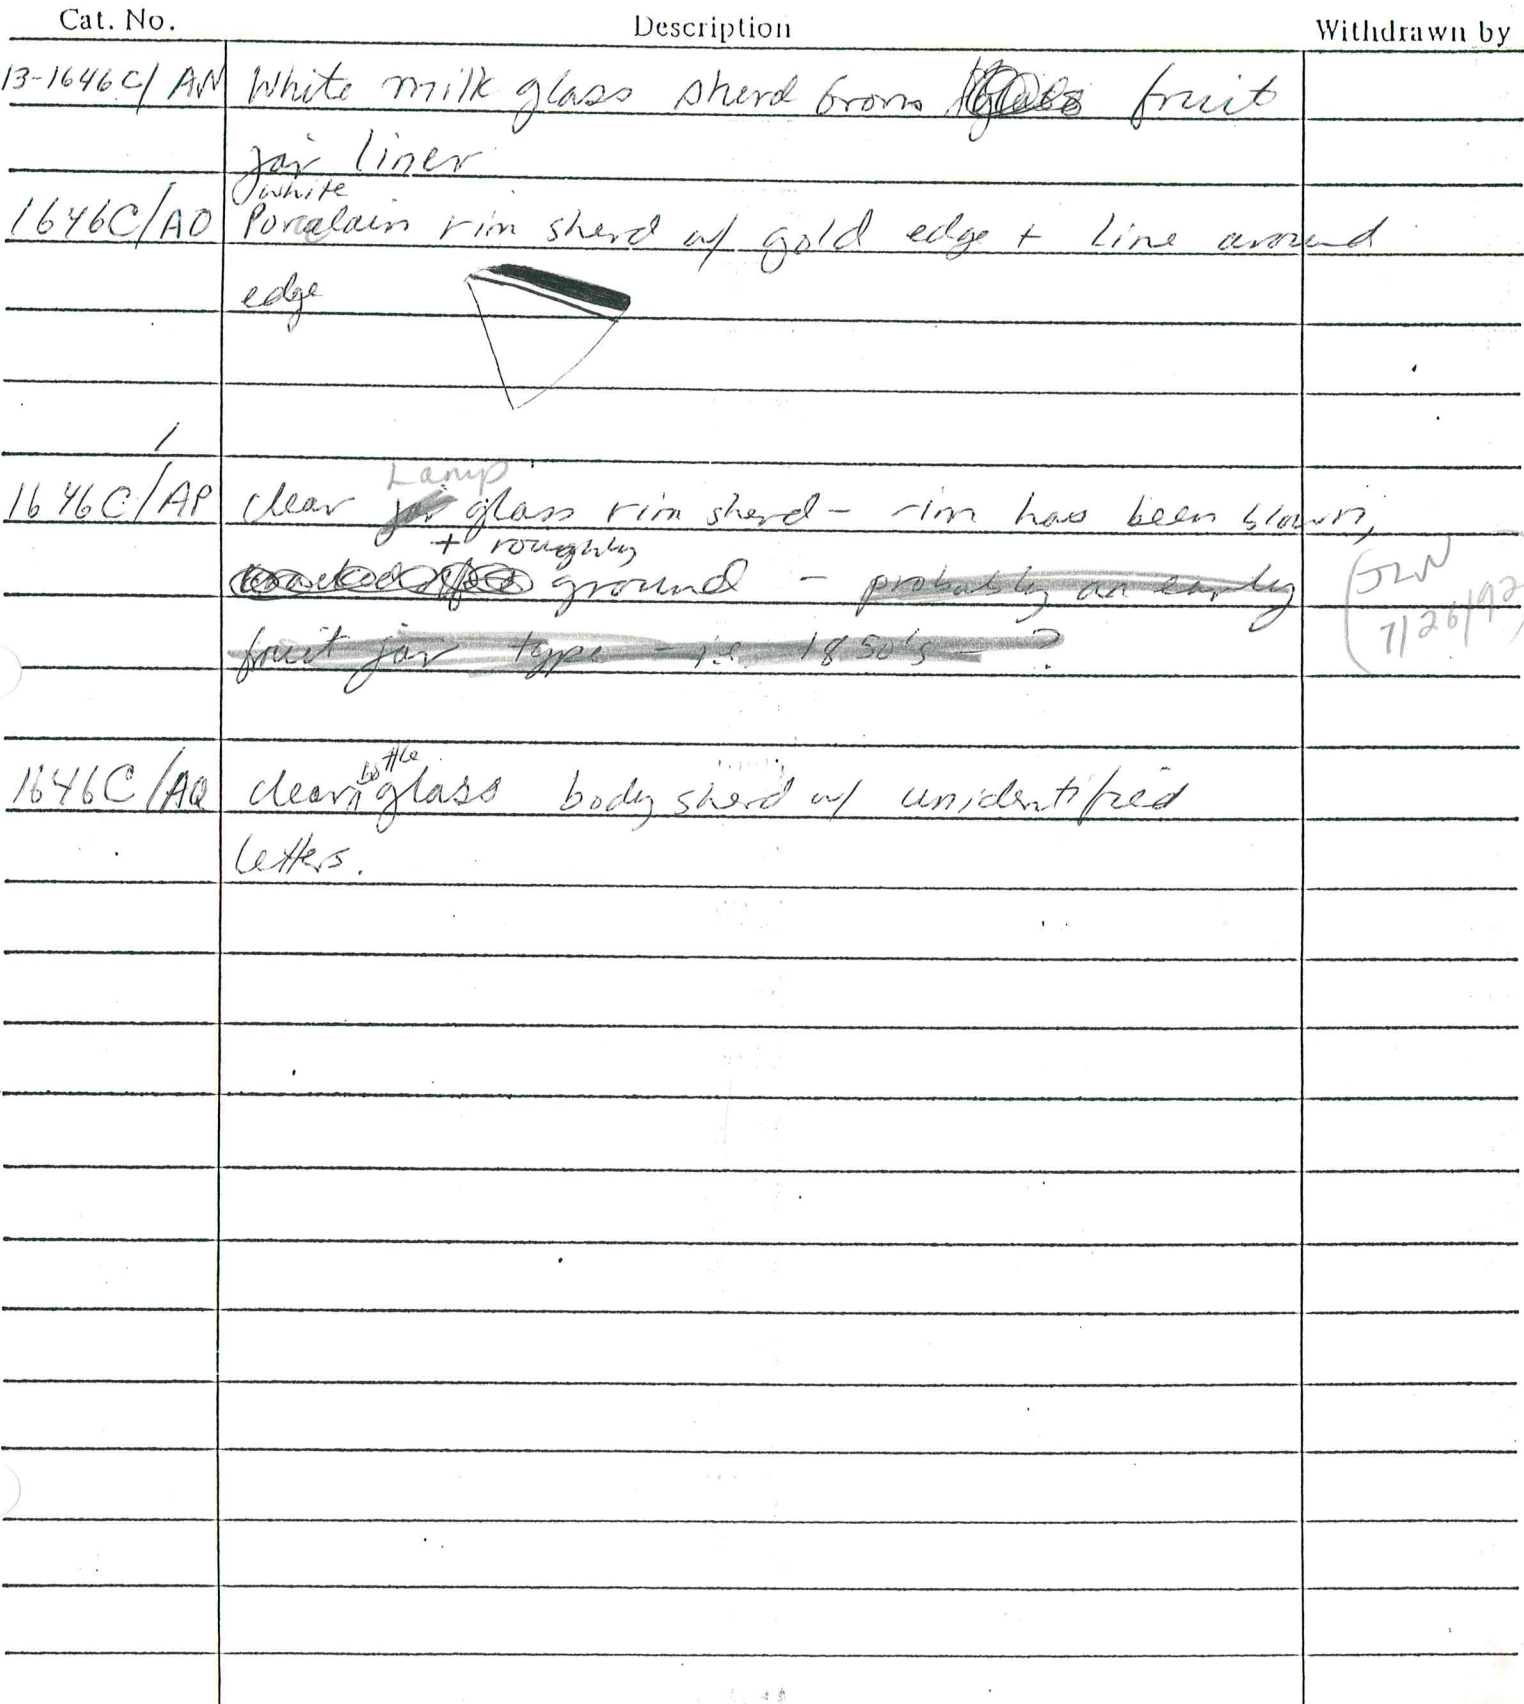 Cat. No. Description Withdrawn by
13-1646C/AN White milk glass sherd from fruit
jar liner
white
1646C/AO Porcelain rim sherd w/ gold edge + line around
edge
Lamp
1646C/AP clear jar glass rim sherd - rim has been blown,
+ roughly
ground - probably an early
JLW
7/26/92
fruit jar type - i.e. 1850's - ?
bottle
1646C/AQ clear glass body sherd w/ unidentified
letters.